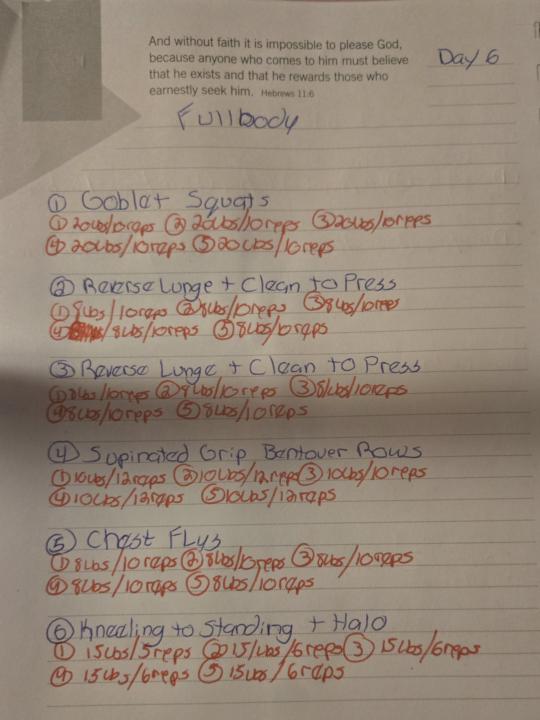 And without faith it is impossible to please God,
because anyone who comes to him must believe
that he exists and that he rewards those who
earnestly seek him. Hebrews 11:6
Day 6
Fullbody
① Goblet Squats
① 20lbs/10reps ② 20lbs/10reps ③ 20lbs/10reps
④ 20lbs/10reps ⑤ 20lbs/10reps
② Reverse Lunge + Clean to Press
① 8lbs/10reps ② 8lbs/10reps ③ 8lbs/10reps
④ /8lbs/10reps ⑤ 8lbs/10reps
③ Reverse Lunge + Clean to Press
① 8lbs/10reps ② 8lbs/10reps ③ 8lbs/10reps
④ 8lbs/10reps ⑤ 8lbs/10reps
④ Supinated Grip Bentover Rows
① 10lbs/12reps ② 10lbs/12reps ③ 10lbs/10reps
④ 10lbs/12reps ⑤ 10lbs/12reps
⑤ Chest Flys
① 8lbs/10reps ② 8lbs/10reps ③ 8lbs/10reps
④ 8lbs/10reps ⑤ 8lbs/10reps
⑥ Kneeling to Standing + Halo
① 15lbs/5reps ② 15/lbs/6reps ③ 15lbs/6reps
④ 15lbs/6reps ⑤ 15lbs/6reps